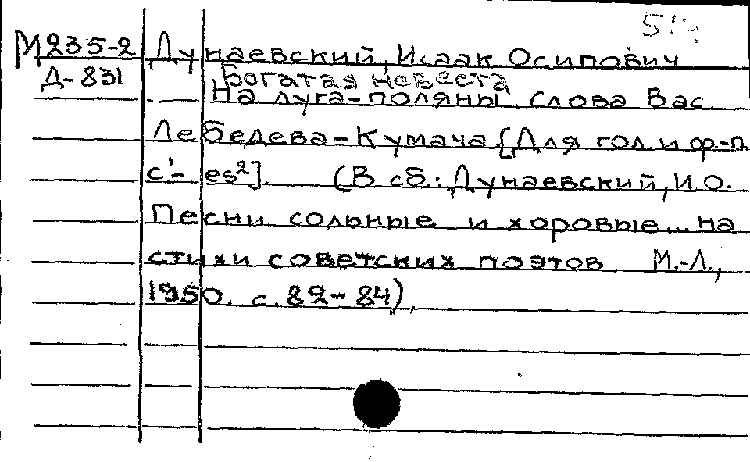 М235-2 Дунаевский, Исаак Осипович
Д-831 Богатая невеста
На луга-поляны. Слова Вас.
Лебедева-Кумача [Для гол. и ф.-п.
c¹- es²]. (В сб.: Дунаевский, И.О.
Песни сольные и хоровые... на
стихи советских поэтов М.-Л.,
1950. с. 82-84).